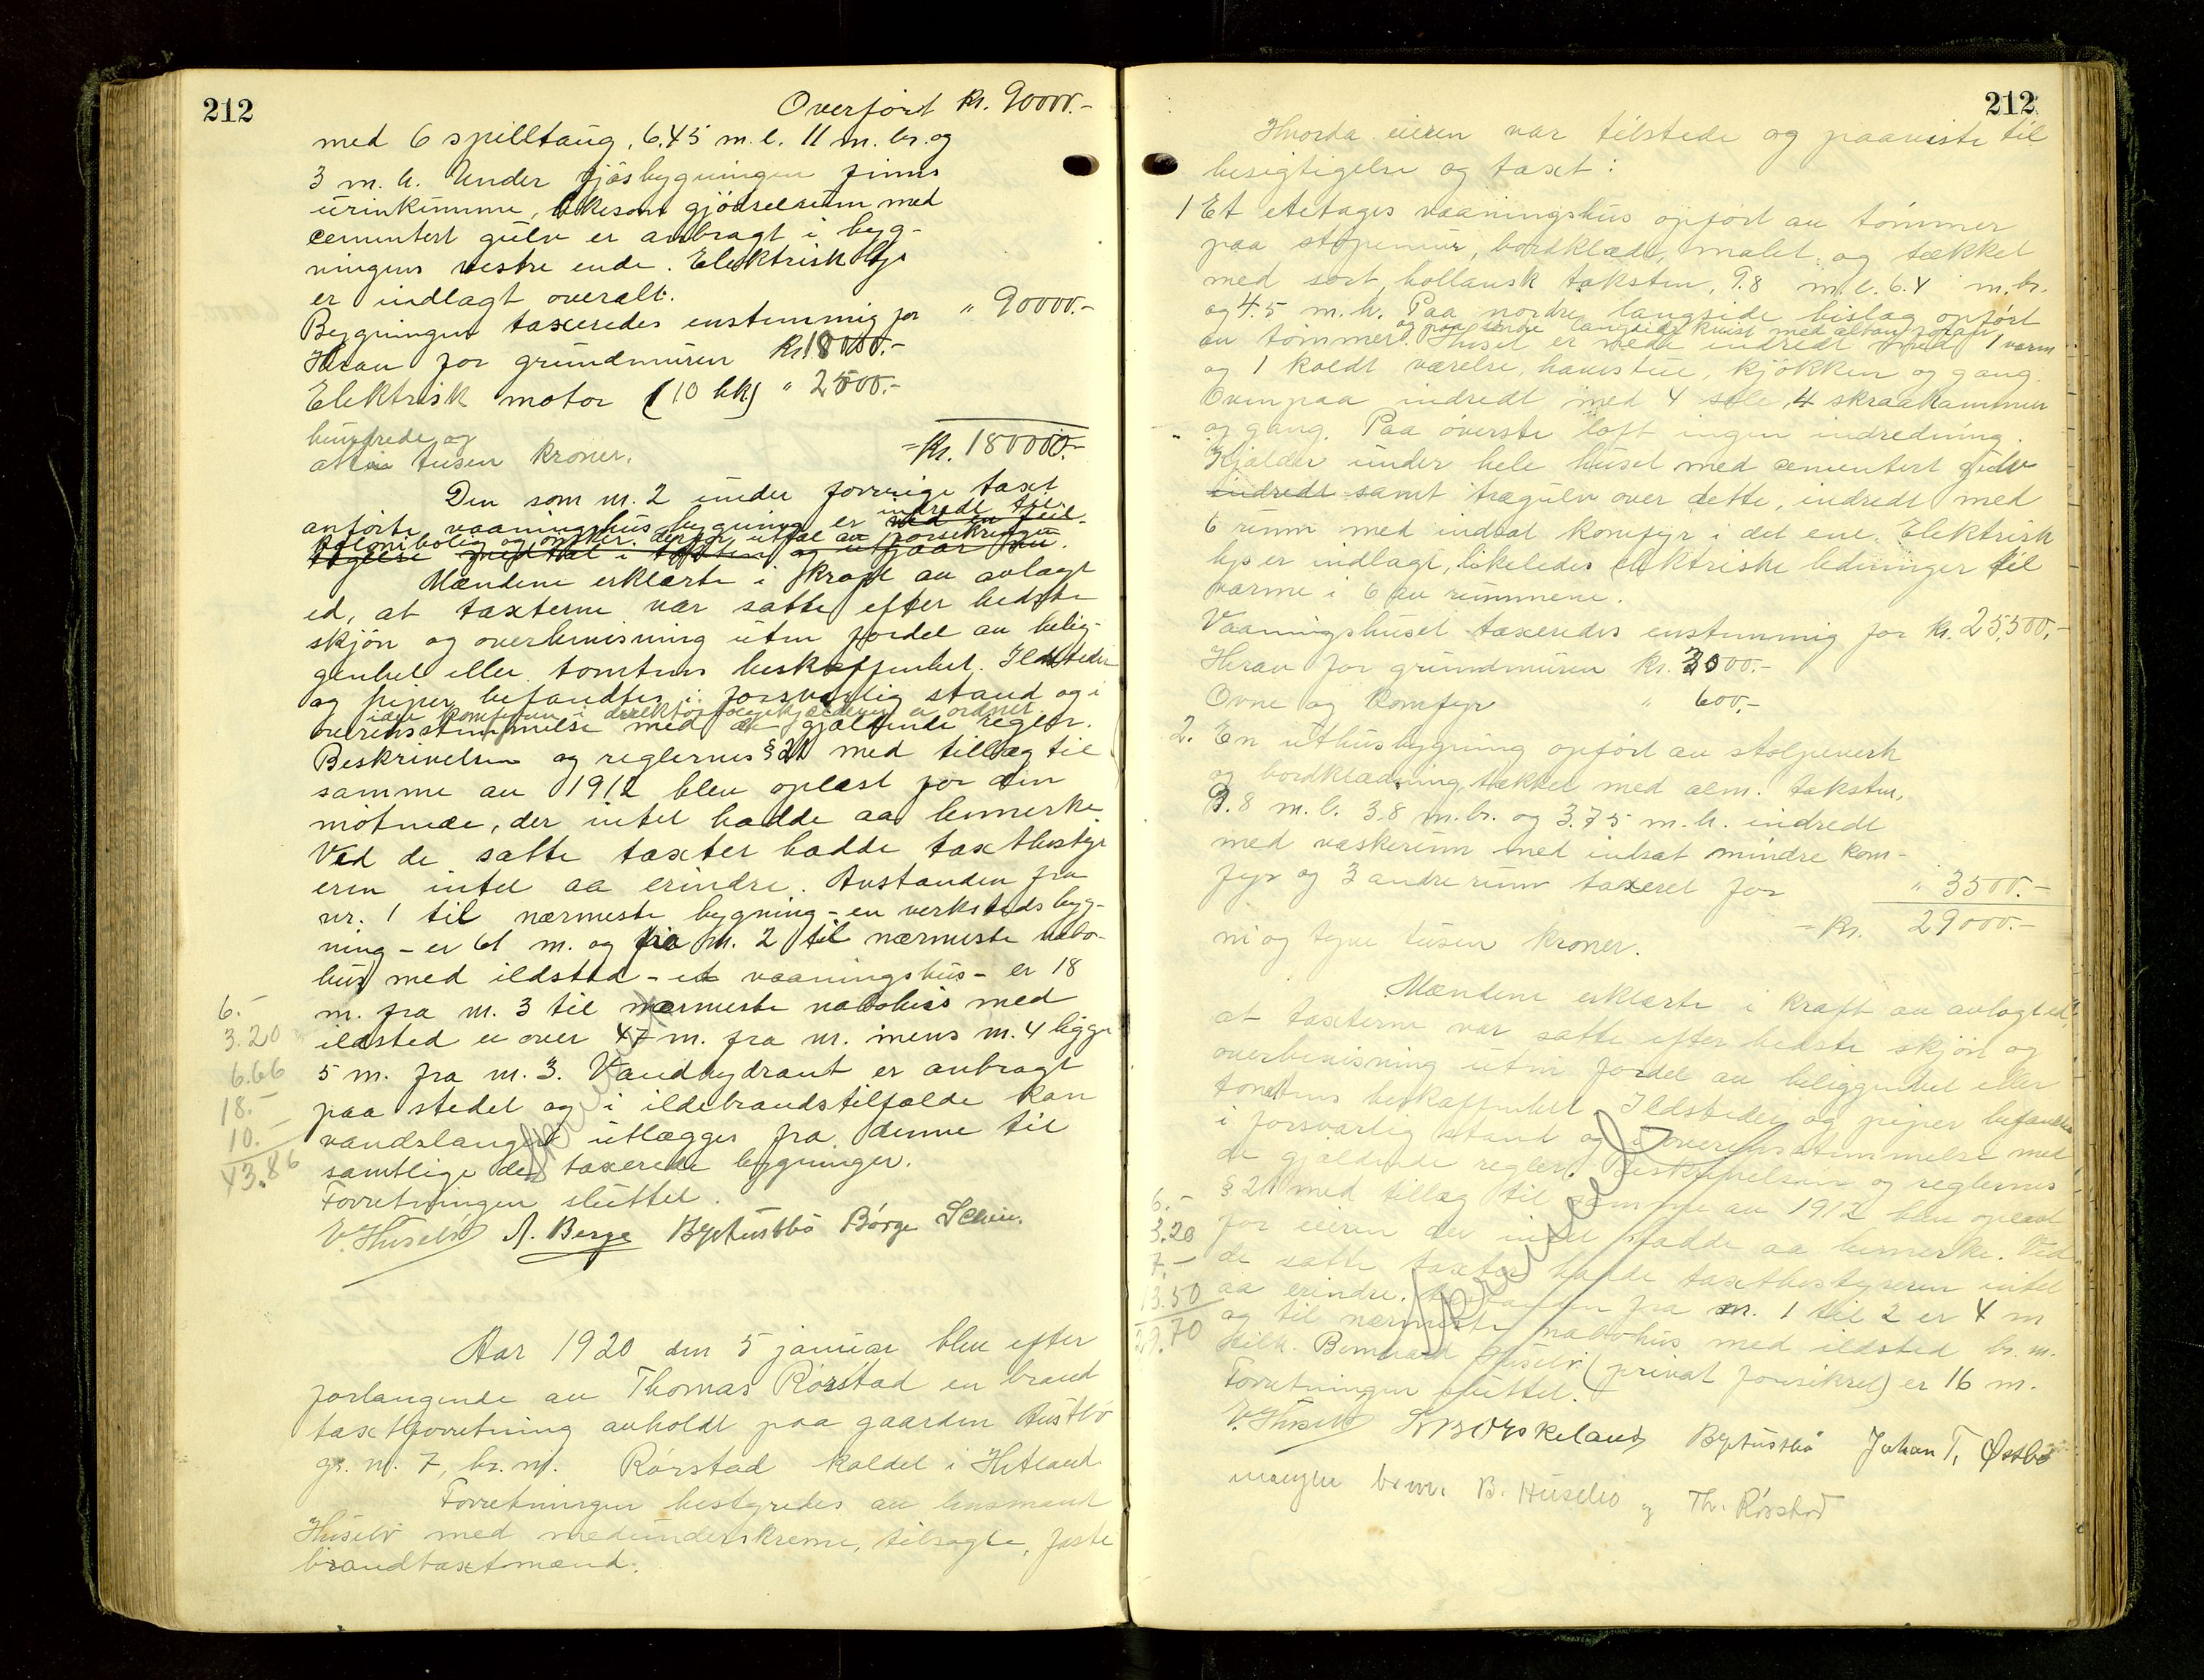 212
Overført Kr. 90000.-
med 6 spilltaug, 6.45 m. l. 11 m. br. og
3 m. h. Under fjøsbygningen finns
urinkumme, likesom gjødselrum med
cementert gulv er anbragt i byg-
ningens vestre ende. Elektrisk lys
er indlagt overalt.
Bygningen taxeredes enstemmig for " 90000.-
Herav for grundmuren Kr. 18000.-
Elektrisk motor (10 hk) " 2500.-
hundrede og
atti tusen kroner. = Kr. 180000.-
Den som nr. 2 under forrige taxt
indredt til
anførte vaaningshusbygning er
kolonibolig og ønsker derfor utgaa av forsikringen
Mændene erklærte i kraft av avlagt
ed, at taxterne var satte efter bedste
skjøn og overbevisning uten fordel av belig-
genhet eller tomtens beskaffenhet. Ildsteder
og piper befandtes i forsvarlig stand og i
overensstemmelse med de gjældende regler.
Beskrivelsen og reglernes § 21 med tillæg til
samme av 1912 blev oplæst for den
møtende, der intet hadde aa bemerke.
Ved de satte taxter hadde taxtbesty-
eren intet aa erindre. Avstanden fra
nr. 1 til nærmeste bygning - en verkstedsbyg-
ning - er 61 m. og fra nr. 2 til nærmeste nabo-
hus med ildsted - et vaaningshus - er 18
m. fra nr. 3 til nærmeste nabohus med
ildsted er over 47 m. fra nr. mens nr. 4 ligger
5 m. fra nr. 3. Vandhydrant er anbragt
paa stedet og i ildebrandstilfælde kan
vandslanger utlægges fra denne til
samtlige de taxerede bygninger.
Forretningen sluttet.
V. Husebø A. Berge B. Austbø Børge
6.-
3.20
6.66
18.-
10.-
43.86
Aar 1920 den 5 januar blev efter
forlangende av Thomas Rørstad en brand
taxtforretning avholdt paa gaarden Austbø
gr. nr. 7, br. nr. Rørstad kaldet i Hetland.
Forretningen bestyredes av lensmand
Husebø med medunderskrevne, tilsagte, faste
brandtaxtmænd.
212
Hvorda eieren var tilstede og paaviste til
besigtigelse og taxt:
1 Et etetages vaaningshus opført av tømmer
paa støpemur, bordklædt, malet og tækket
med sort, hollansk taksten, 9.8 m. l. 6.4 m. br.
og 4.5 m. h. Paa nordre langside bislag opført
og paa søndre langside kvist med altan foran
av tømmer. Huset er nede indredt med 1 varm
og 1 koldt værelse, havestue, kjøkken og gang.
Ovenpaa indredt med 4 sole, 4 skraakammer
og gang. Paa øverste loft ingen indredning.
Kjælder under hele huset med cementert gulv
indredt samt trægulv over dette, indredt med
6 rumm med indsat komfyr i det ene. Elektrisk
lys er indlagt, likeledes elektriske ledninger til
varme i 6 av rummene.
Vaaningshuset taxeredes enstemmig for Kr. 25,500.-
Herav for grundmuren Kr. 3000.-
Ovne og Komfyr " 600.-
2. En uthusbygning opført av stolpeverk
og bordklædning, tækket med alm. taksten,
9.8 m. l. 3.8 m. br. og 3.75 m. h. indredt
med vaskerum med indsat mindre kom-
fyr og 3 andre rum taxeret for " 3500.-
= Kr. 29000.-
ni og tyve tusen kroner.
Mændene erklærte i kraft av avlagt ed,
at taxterne var satte efter bedste skjøn og
overbevisning uten fordel av beliggenhet eller
tomtens beskaffenhet. Ildsteder og piper befandtes
i forsvarlig stand og i overensstemmelse med
de gjældende regler. Beskrivelsen og reglernes
§ 21 med tillæg til samme av 1912 blev oplæst
for eieren der intet hadde aa bemerke. Ved
de satte taxter hadde taxtbestyreren intet
aa erindre. Avstanden fra nr. 1 til 2 er 4 m
og til nærmeste nabohus med ildsted br. nr.
tilh. Bernhard Husebø (privat forsikret) er 16 m.
Forretningen sluttet.
V. Husebø B. Austbø Johan T. Østbø
mangler br. nr. B. Husebø og Th. Rørstad
6.-
3.20
7.-
13.50
29.70